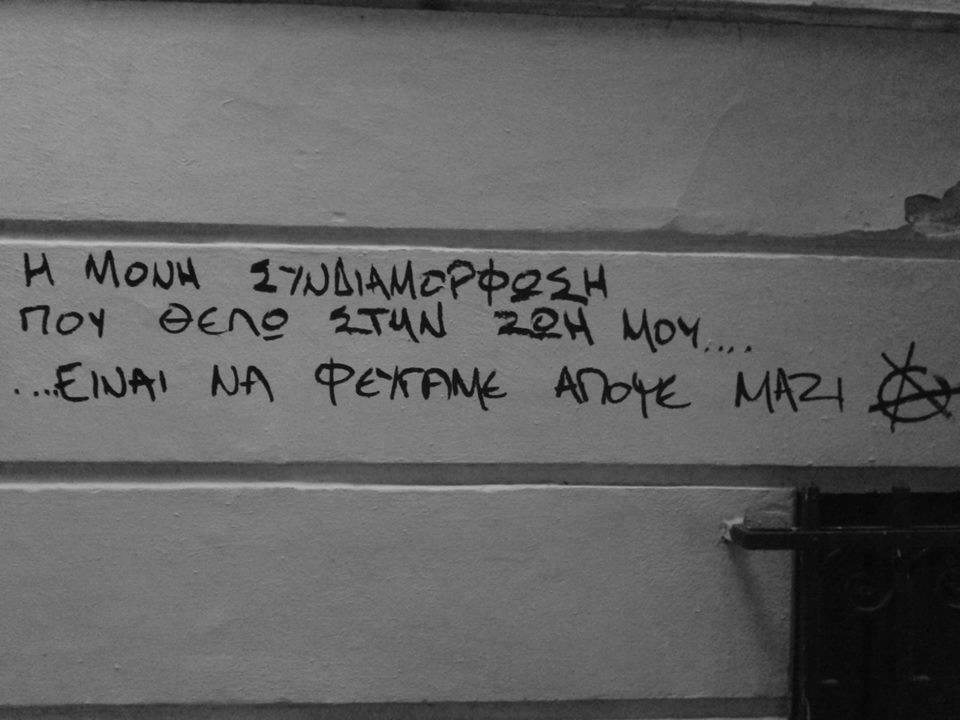 Η ΜΟΝΗ ΣΥΝΔΙΑΜΟΡΦΩΣΗ
ΠΟΥ ΘΕΛΩ ΣΤΗΝ ΖΩΗ ΜΟΥ....
....ΕΙΝΑΙ ΝΑ ΦΕΥΓΑΜΕ ΑΠΟΨΕ ΜΑΖΙ